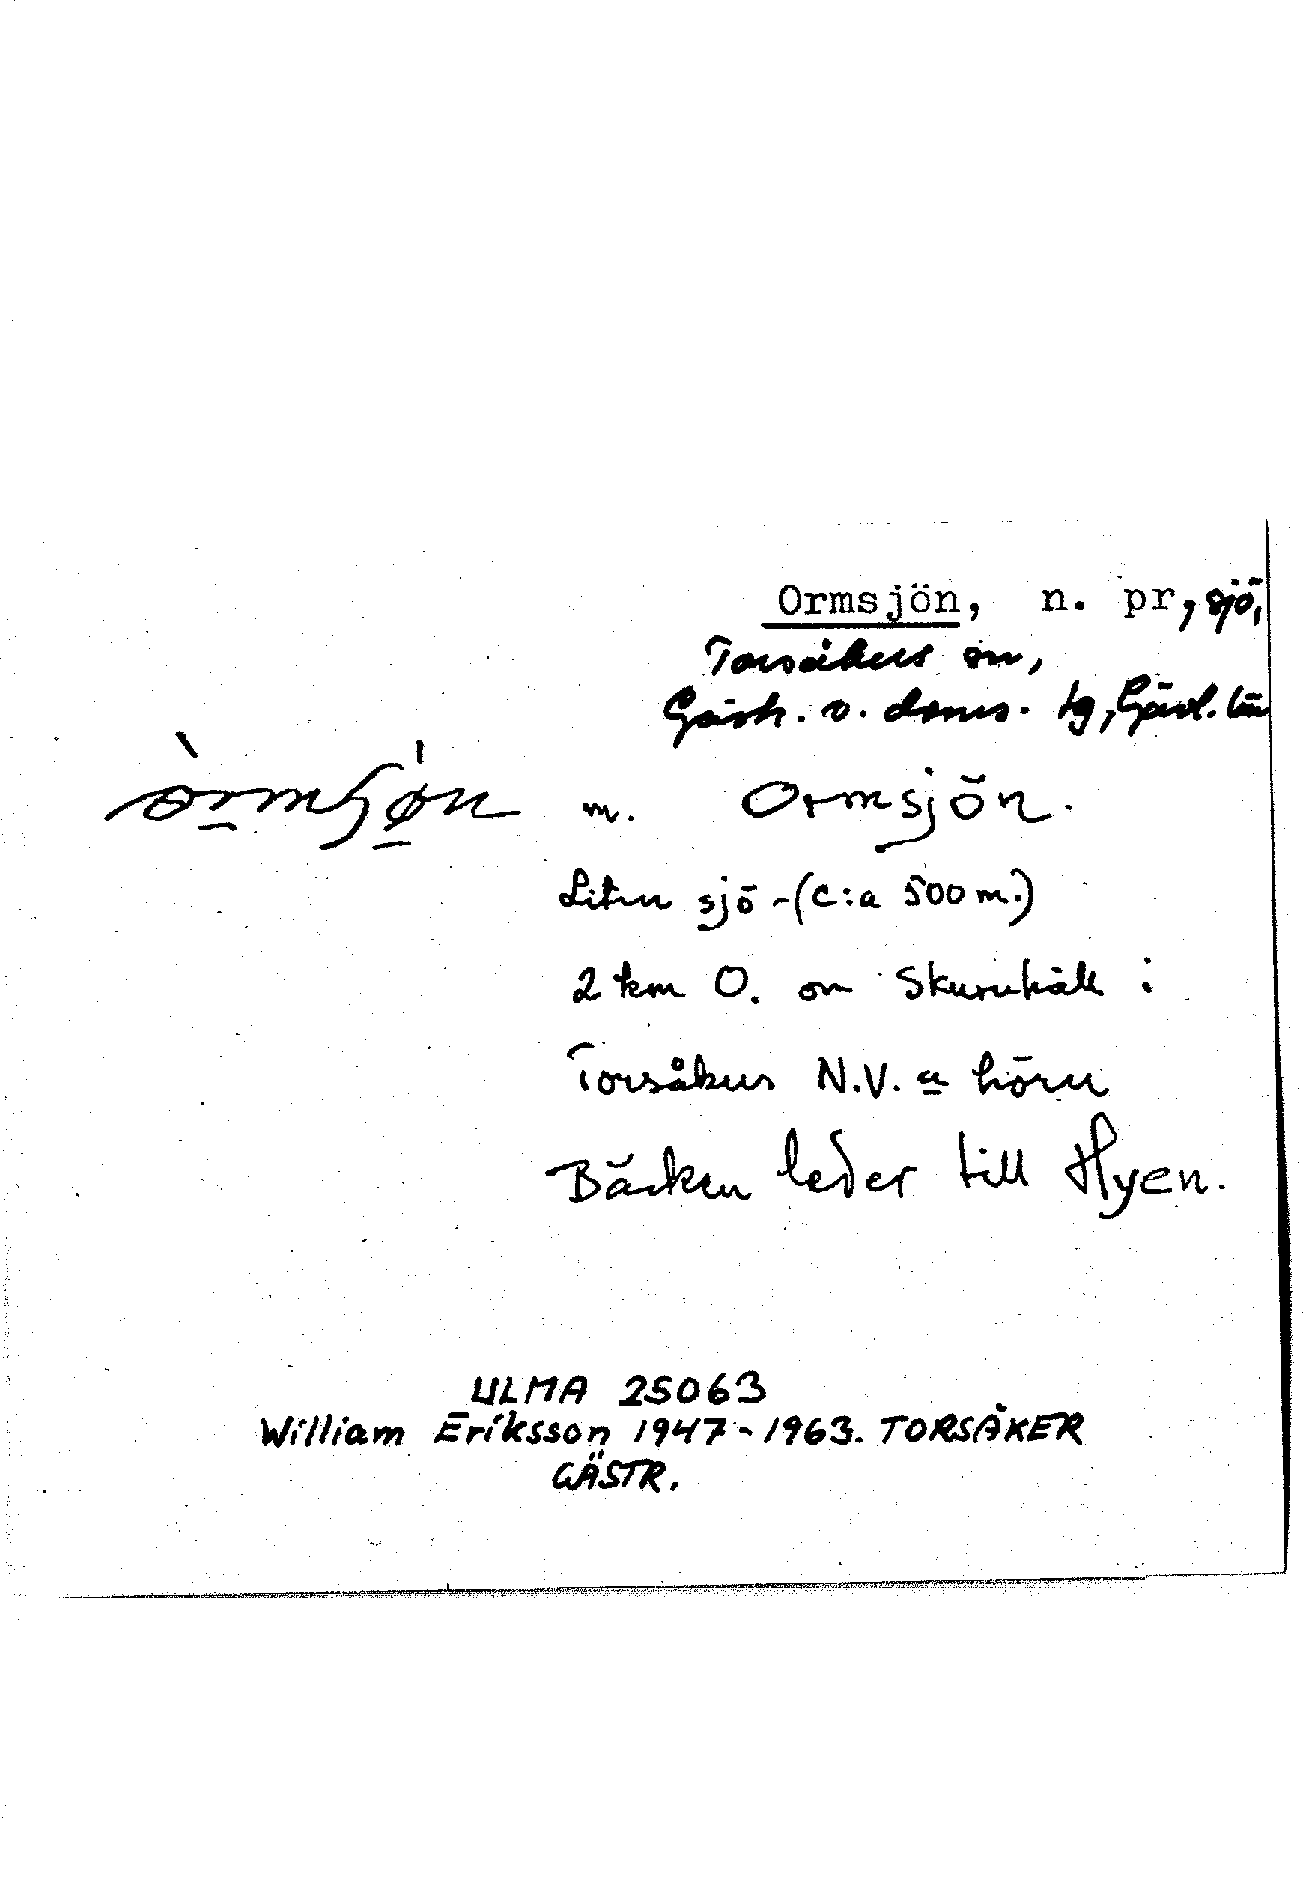 Ormsjön, n. pr, sjö,
Torsåkers sn,
Gästr. v. doms. tg, Gävl. län
m. Ormsjön.
Liten sjö - (c:a 500 m.)
2 km O. om i
Torsåkers N.V.a hörn
Bäcken leder till Hyen.
ULMA 25063
William Eriksson 1947-1963. TORSÅKER
GÄSTR.